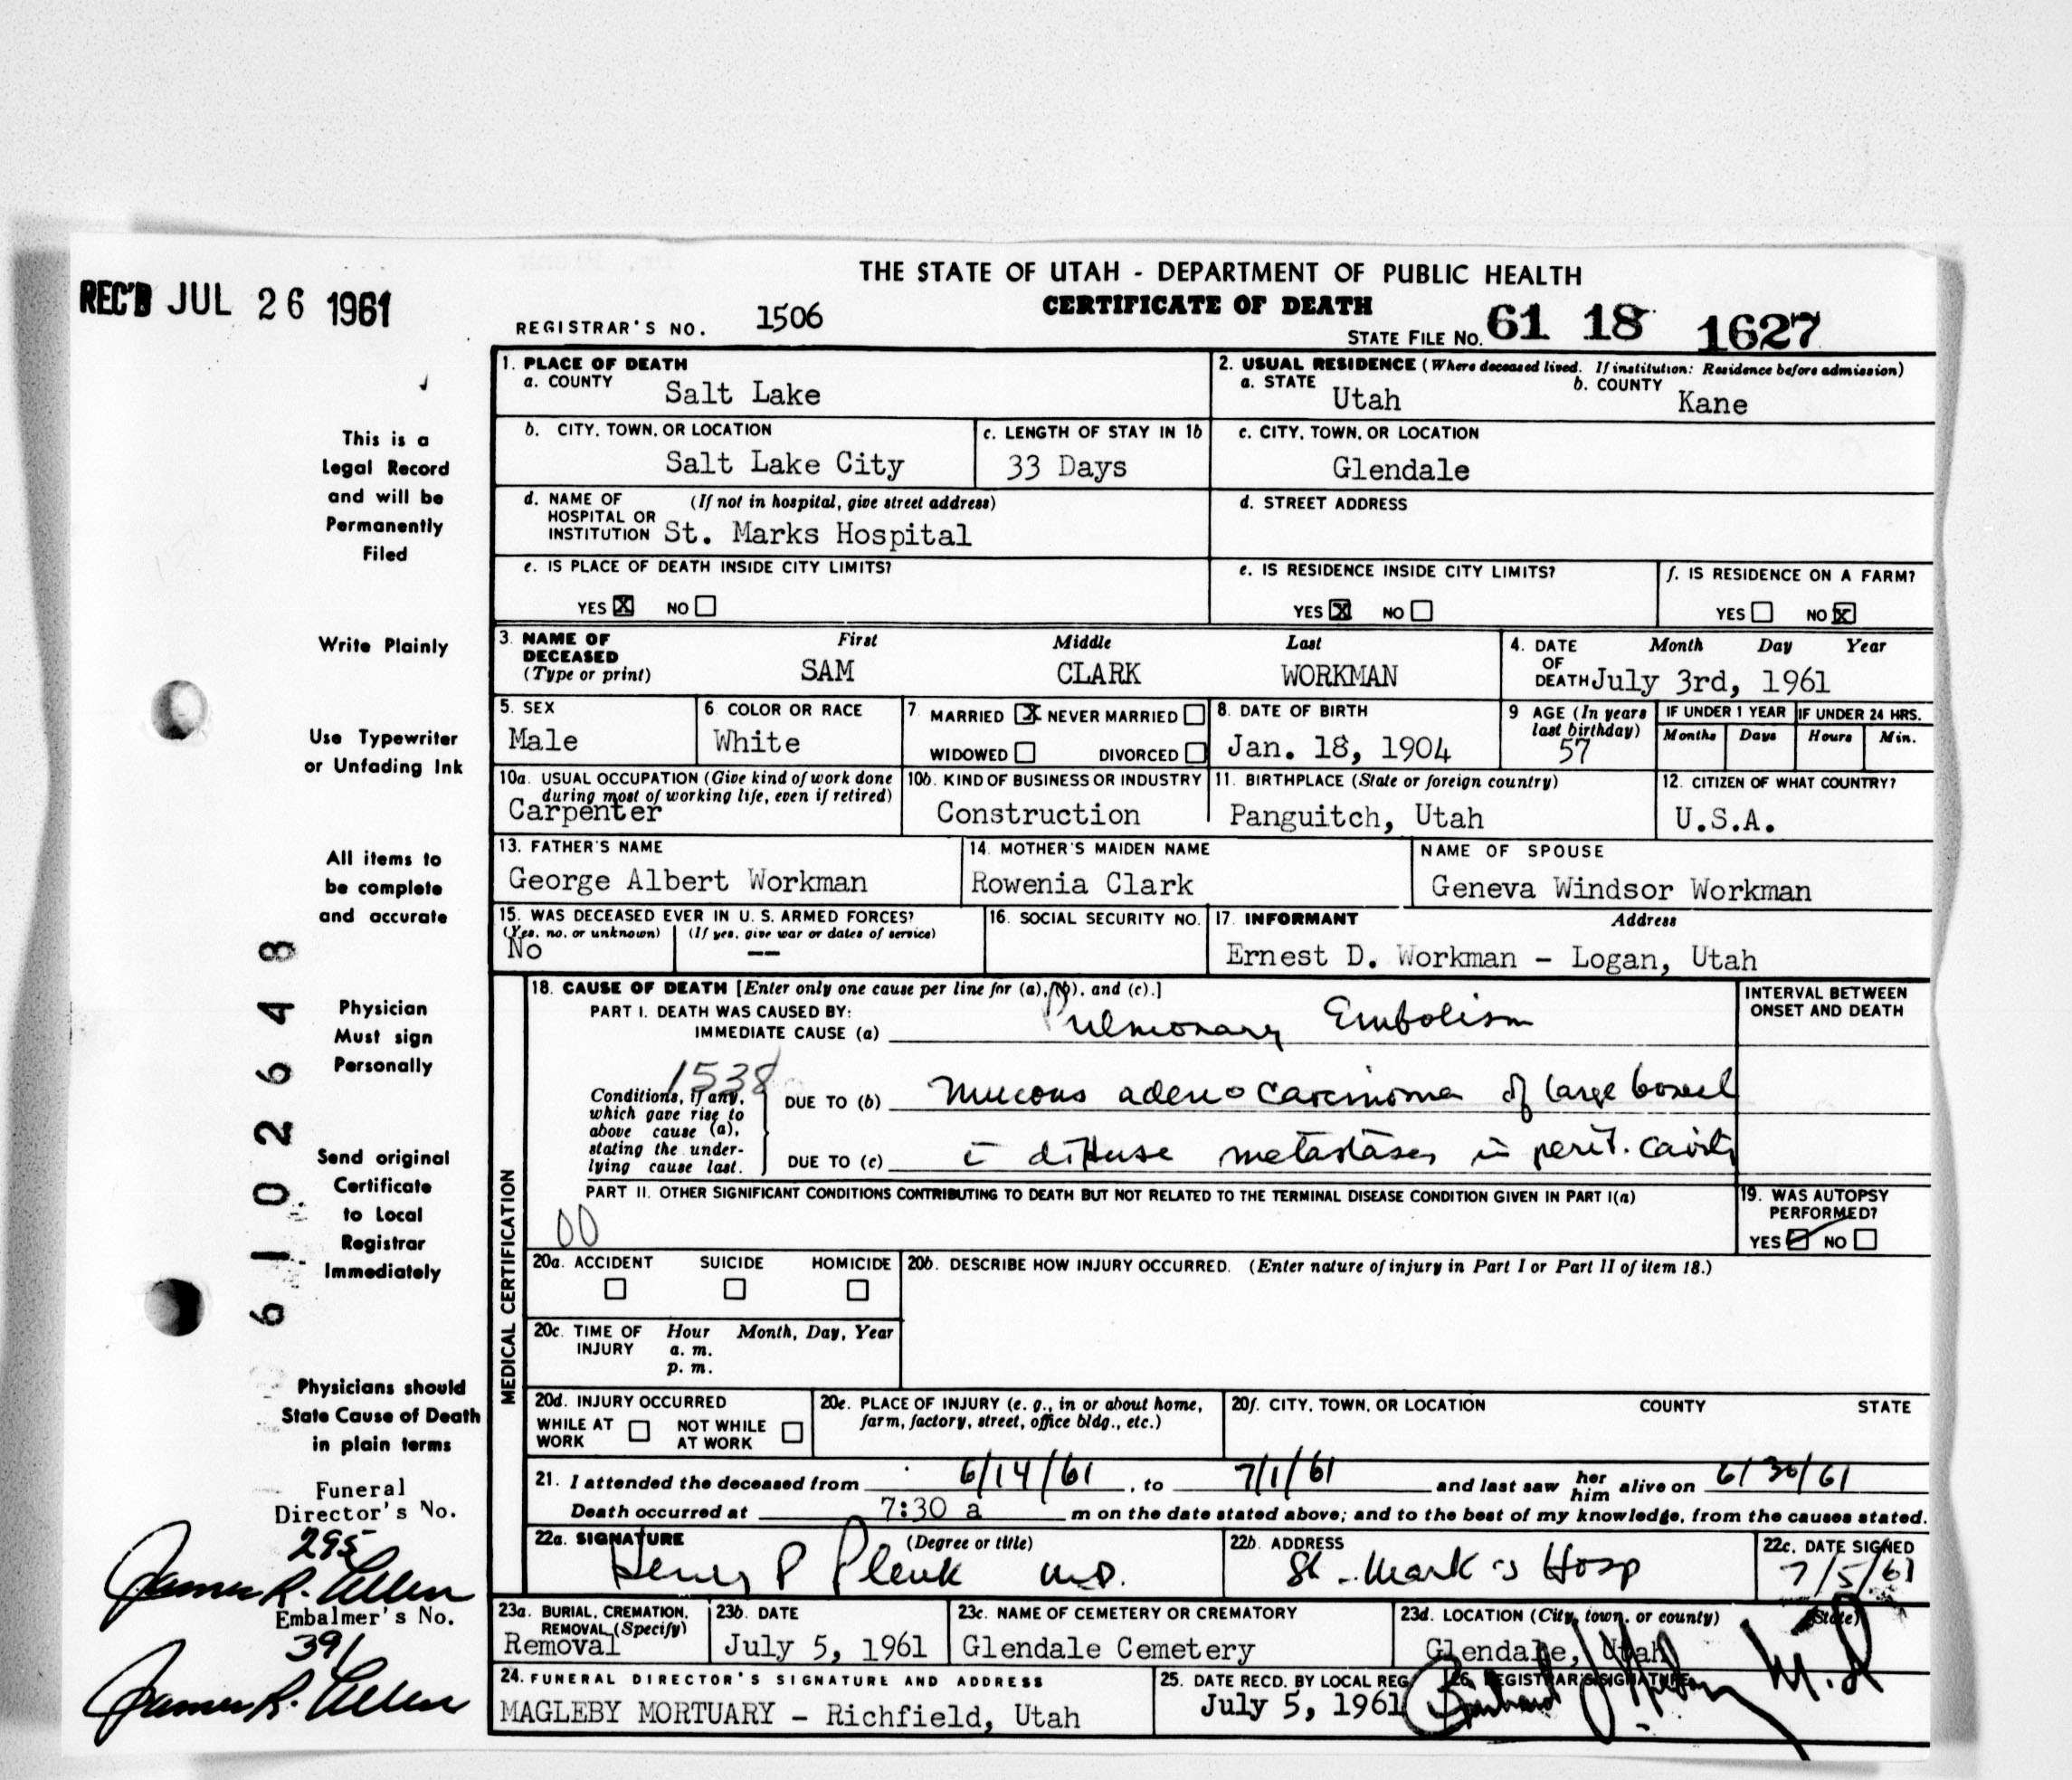 THE STATE OF UTAH - DEPARTMENT OF PUBLIC HEALTH
CERTIFICATE OF DEATH
REC'D JUL 26 1961
REGISTRAR'S NO. 1506
STATE FILE NO. 61 18 1627
This is a
Legal Record
and will be
Permanently
Filed
Write Plainly
Use Typewriter
or Unfading Ink
All items to
be complete
and accurate
Physician
Must sign
Personally
Send original
Certificate
to Local
Registrar
Immediately
Physicians should
State Cause of Death
in plain terms
6102648
Funeral
Director's No.
295
James R. Allen
Embalmer's No.
391
James R. Allen
1. PLACE OF DEATH
a. COUNTY Salt Lake
2. USUAL RESIDENCE (Where deceased lived. If institution: Residence before admission)
a. STATE Utah b. COUNTY Kane
b. CITY, TOWN, OR LOCATION
Salt Lake City
c. LENGTH OF STAY IN 1b
33 Days
c. CITY, TOWN, OR LOCATION
Glendale
d. NAME OF (If not in hospital, give street address)
HOSPITAL OR
INSTITUTION St. Marks Hospital
d. STREET ADDRESS
e. IS PLACE OF DEATH INSIDE CITY LIMITS?
YES X NO
e. IS RESIDENCE INSIDE CITY LIMITS?
YES X NO
f. IS RESIDENCE ON A FARM?
YES NO X
3. NAME OF DECEASED (Type or print)
First Middle Last
SAM CLARK WORKMAN
4. DATE OF DEATH Month Day Year
July 3rd, 1961
5. SEX
Male
6 COLOR OR RACE
White
7 MARRIED X NEVER MARRIED
WIDOWED DIVORCED
8. DATE OF BIRTH
Jan. 18, 1904
9 AGE (In years last birthday)
57
IF UNDER 1 YEAR IF UNDER 24 HRS.
Months Days Hours Min.
10a. USUAL OCCUPATION (Give kind of work done
during most of working life, even if retired)
Carpenter
10b. KIND OF BUSINESS OR INDUSTRY
Construction
11. BIRTHPLACE (State or foreign country)
Panguitch, Utah
12. CITIZEN OF WHAT COUNTRY?
U.S.A.
13. FATHER'S NAME
George Albert Workman
14. MOTHER'S MAIDEN NAME
Rowenia Clark
NAME OF SPOUSE
Geneva Windsor Workman
15. WAS DECEASED EVER IN U. S. ARMED FORCES?
(Yes, no, or unknown) (If yes, give war or dates of service)
No --
16. SOCIAL SECURITY NO.
17. INFORMANT Address
Ernest D. Workman - Logan, Utah
MEDICAL CERTIFICATION
18. CAUSE OF DEATH [Enter only one cause per line for (a), (b), and (c).]
INTERVAL BETWEEN
ONSET AND DEATH
PART I. DEATH WAS CAUSED BY:
IMMEDIATE CAUSE (a) Pulmonary Embolism
1538
Conditions, if any,
which gave rise to
above cause (a),
stating the under-
lying cause last.
DUE TO (b) Mucous adeno carcinoma of large bowel
DUE TO (c) c̄ diffuse metastases in perit. cavity
PART II. OTHER SIGNIFICANT CONDITIONS CONTRIBUTING TO DEATH BUT NOT RELATED TO THE TERMINAL DISEASE CONDITION GIVEN IN PART I(a)
00
19. WAS AUTOPSY
PERFORMED?
YES NO
20a. ACCIDENT SUICIDE HOMICIDE
20b. DESCRIBE HOW INJURY OCCURRED. (Enter nature of injury in Part I or Part II of item 18.)
20c. TIME OF INJURY Hour Month, Day, Year
a. m.
p. m.
20d. INJURY OCCURRED
WHILE AT WORK NOT WHILE AT WORK
20e. PLACE OF INJURY (e. g., in or about home,
farm, factory, street, office bldg., etc.)
20f. CITY, TOWN, OR LOCATION COUNTY STATE
21. I attended the deceased from 6/14/61, to 7/1/61 and last saw her him alive on 6/30/61
Death occurred at 7:30 a m on the date stated above; and to the best of my knowledge, from the causes stated.
22a. SIGNATURE (Degree or title)
Henry P Plenk M.D.
22b. ADDRESS
St. Mark's Hosp
22c. DATE SIGNED
7/5/61
23a. BURIAL, CREMATION,
REMOVAL (Specify)
Removal
23b. DATE
July 5, 1961
23c. NAME OF CEMETERY OR CREMATORY
Glendale Cemetery
23d. LOCATION (City, town, or county) (State)
Glendale, Utah
24. FUNERAL DIRECTOR'S SIGNATURE AND ADDRESS
MAGLEBY MORTUARY - Richfield, Utah
25. DATE RECD. BY LOCAL REG.
July 5, 1961
26. REGISTRAR'S SIGNATURE
M.D